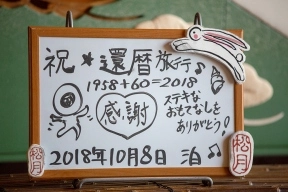 祝*還暦旅行♪
1958+60=2018
感謝
ステキな
おもてなしを
ありがとう!
2018年10月8日 泊♪
松月
松月